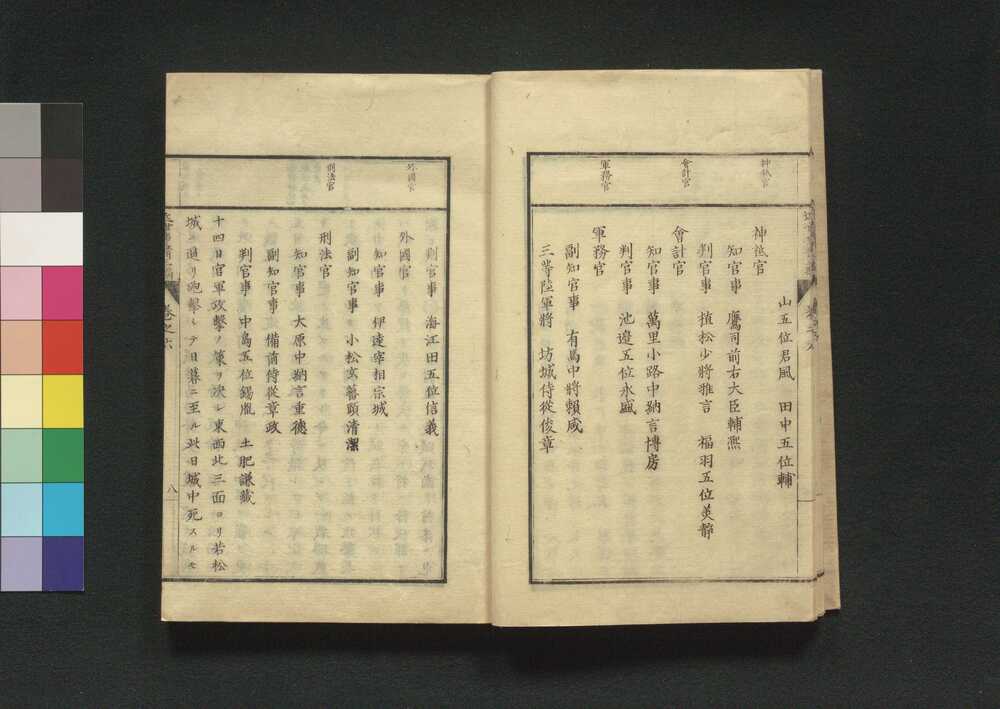 神祗官
會計官
軍務官
山五位君風　田中五位輔
神祗官
知官事　鷹司前右大臣輔熈
判官事　植松少將雅言　福羽五位美靜
會計官
知官事　萬里小路中納言博房
判官事　池邉五位永盛
軍務官
副知官事　有馬中將頼咸
三等陸軍將　坊城侍從俊章
外國官
刑法官
判官事　海江田五位信義
外國官
知官事　伊達宰相宗城
副知官事　小松玄蕃頭清潔
刑法官
知官事　大原中納言重德
副知官事　備前侍從章政
判官事　中島五位錫胤　土肥謙藏
十四日官軍攻擊ノ策ヲ決シ東西北三面ヨリ若松
城ニ迫リ砲擊シテ日暮ニ至ル此日城中死スルモ
卷之六
八